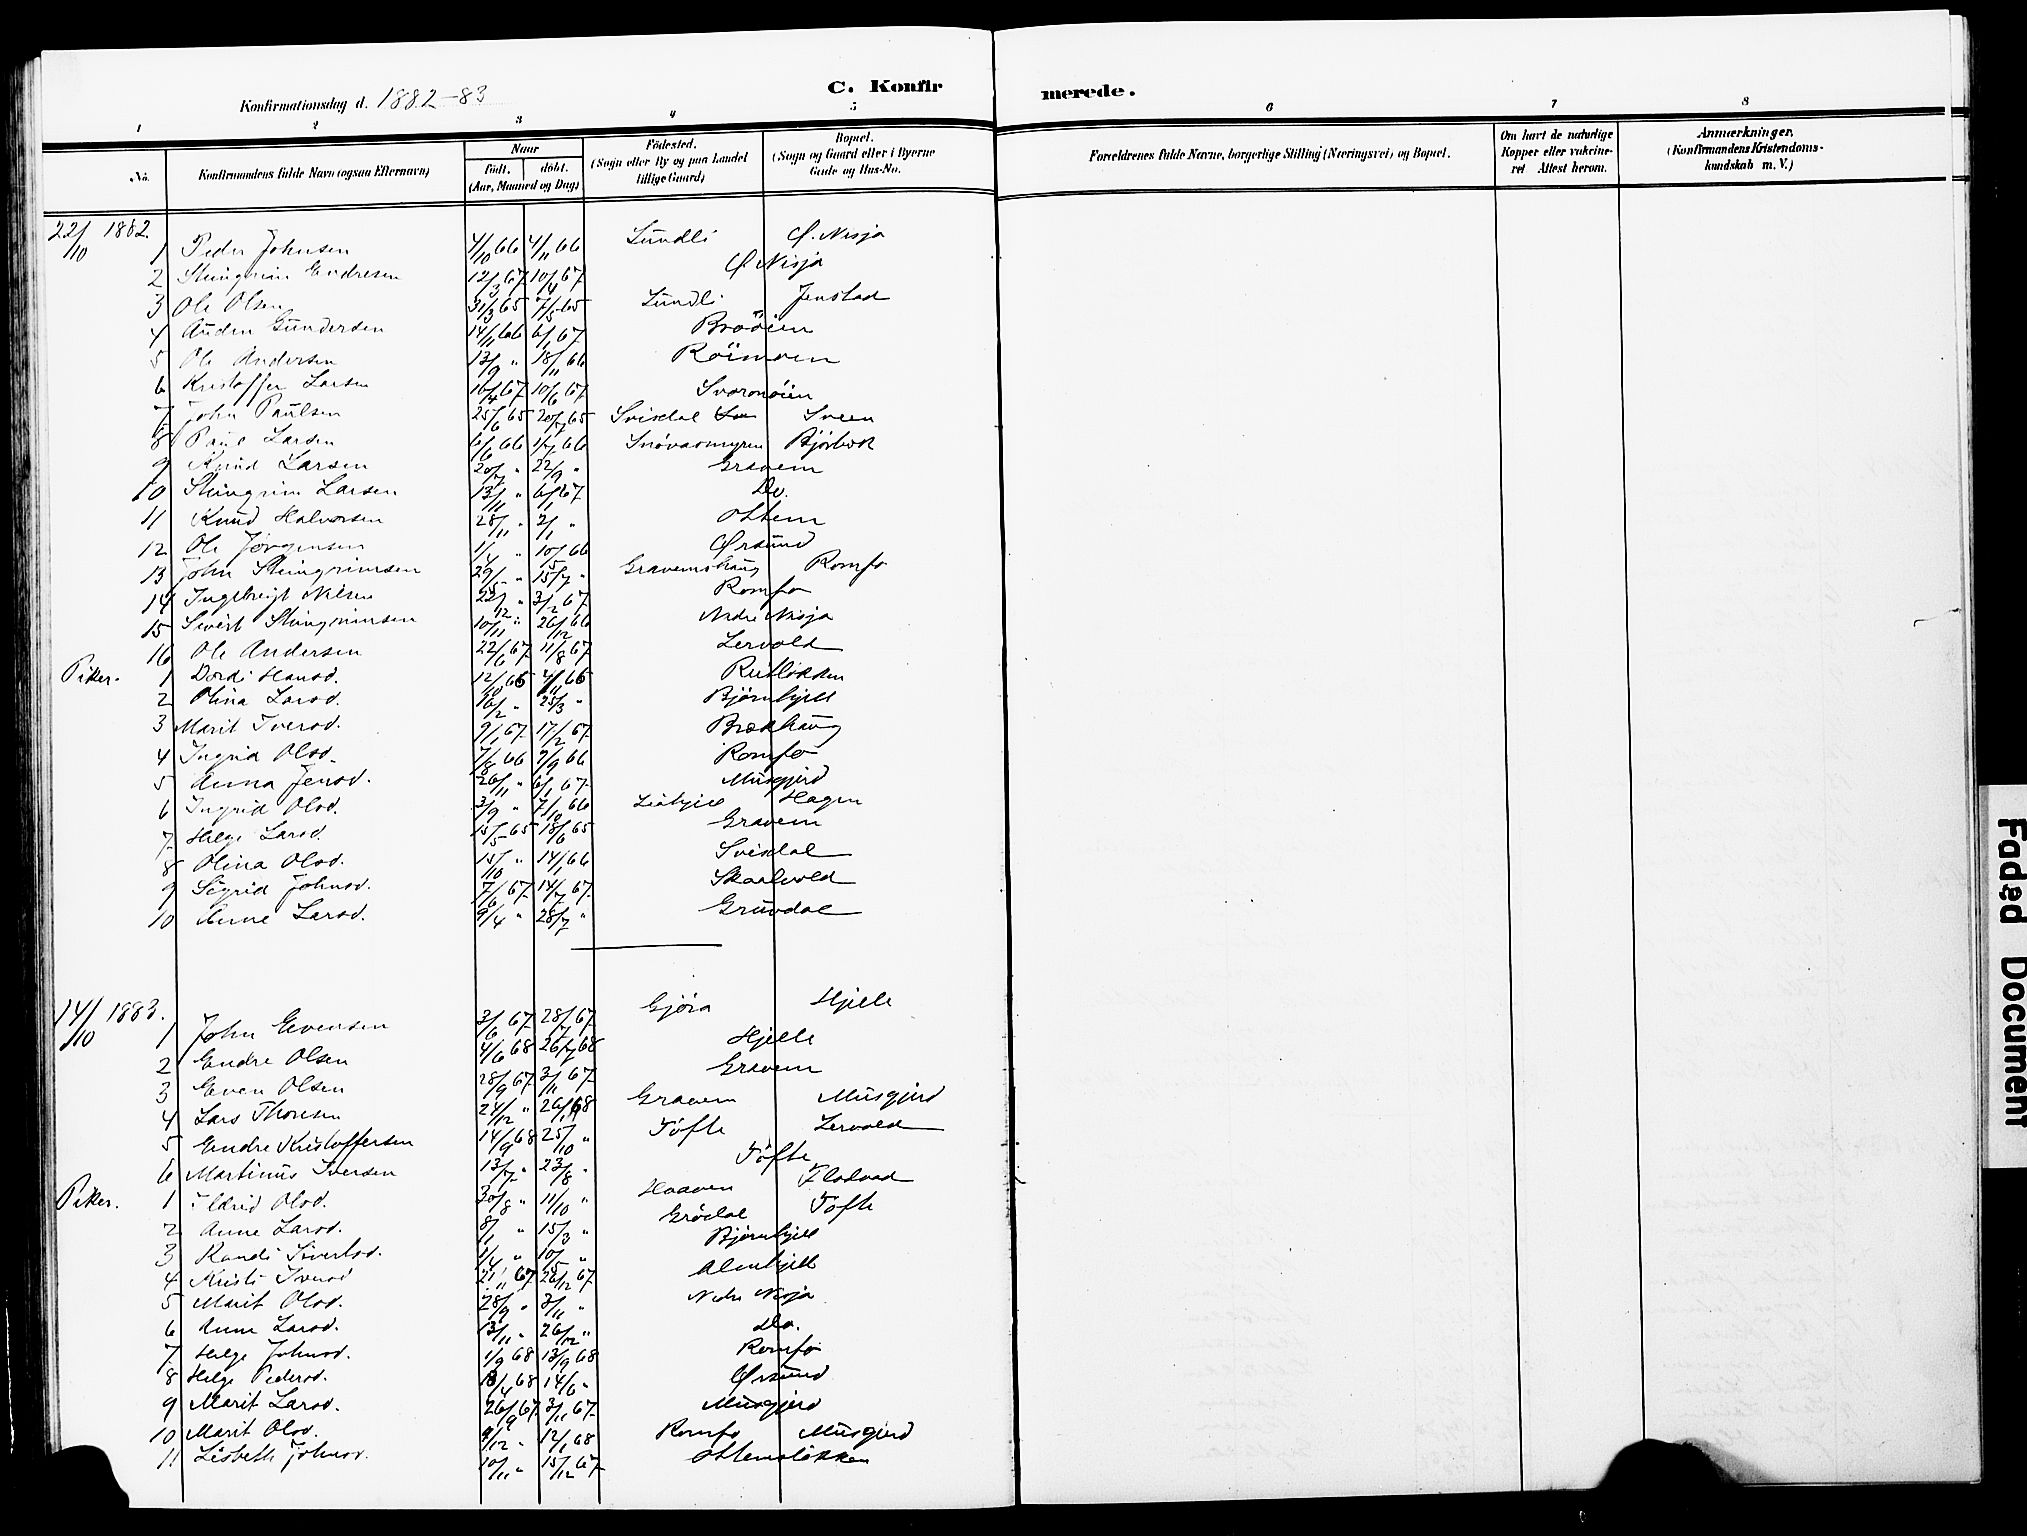 C. Konfirmerede.
Konfirmationsdag d. 1882-83
1 2 3 4 5 6 7 8
No.
Konfirmandens fulde Navn (ogsaa Efternavn)
Naar
født. døbt.
(Aar, Maaned og Dag)
Fødested.
(Sogn eller By og paa Landet tillige Gaard)
Bopæl.
(Sogn og Gaard eller i Byerne Gade og Hus-No.
Forældrenes fulde Navne, borgerlige Stilling (Næringsvei) og Bopæl.
Om havt de naturlige Kopper eller vakcineret Attest herom.
Anmærkninger.
(Konfirmandens Kristendomskundskab m. V.)
22/10 1882.
1 Peder Johnsen 4/10 66 4/11 66 Lundli Ø. Nisja
2 Steingrim Endresen 12/3 67 10/4 67 Ø Nisja
3 Ole Olsen 31/3 65 7/5 65 Lundli Jenstad
4 Auden Gundersen 14/11 66 6/1 67 Brøöien
5 Ole Andersen 13/9 " 18/11 66 Röimoen
6 Kristoffer Larsen 16/4 67 10/6 67 Svorønøien
7 John Paulsen 25/6 65 20/7 65 Svisdal Sveen
8 Paul Larsen 6/6 66 1/7 66 Snøvasmyren Bjørbæk
9 Knud Larsen 20/7 " 22/9 " Gravem
10 Steingrim Larsen 13/11 " 6/1 67 Do.
11 Knud Halvorsen 28/11 " 2/1 " Ottem
12 Ole Jørgensen 1/4 " 10/5 66 Ørsund
13 John Steingrimsen 29/5 " 15/7 " Gravemshaug Romfo
14 Ingebrigt Nilsen 22/12 " 3/2 67 Romfo
15 Sivert Steingrimsen 10/11 " 26/12 66 Nedre Nisja
16 Ole Andersen 22/6 67 11/8 67 Lervold
Piker.
1 Dordi Hansd. 12/10 66 4/11 66 Reitløkken
2 Olina Larsd. 16/2 " 25/3 " Bjørnhjell
3 Marit Iversd. 9/1 67 17/2 67 Brækhaug
4 Ingrid Olsd. 7/8 66 9/9 66 Romfo
5 Anna Jensd. 26/11 " 6/1 67 Musgjerd
6 Ingrid Olsd. 3/9 " 7/10 66 Liahjell Hagen
7 Helge Larsd. 15/5 65 18/6 65 Gravem
8 Olina Olsd. 15/10 " 14/1 66 Svisdal
9 Sigrid Johnsd. 7/6 67 14/7 67 Skaalvold
10 Anne Larsd. 9/4 " 28/7 " Gruvdal
14/10 1883.
1 John Evensen 3/6 67 28/7 67 Gjøra Hjelle
2 Endre Olsen 4/6 68 26/7 68 Hjelle
3 Even Olsen 28/9 67 3/11 67 Gravem
4 Lars Thoresen 24/12 " 26/1 68 Gravem Musgjerd
5 Endre Kristoffersen 14/9 68 25/10 " Töfte Lervold
6 Martinus Iversen 13/7 " 23/8 " Töfte
Piker.
1 Ildrid Olsd. 30/8 " 11/10 " Hoaven Flodvad
2 Anne Larsd. 8/1 " 15/3 " Grødal Töfte
3 Randi Sivertsd. 1/4 " 10/5 " Bjørnhjell
4 Kristi Iversd 21/11 67 26/12 67 Almhjell
5 Marit Olsd. 28/9 " 3/11 " Nedre Nisja
6 Anne Larsd. 13/11 " 26/12 " Do.
7 Helge Johnsd. 1/9 68 13/9 68 Romfo
8 Helge Pedersd. 13/4 68 14/6 " Ørsund
9 Marit Larsd. 26/9 67 3/11 67 Musgjerd
10 Marit Olsd. 9/12 " 12/1 68 Romfo Musgjerd
11 Lisbeth Johnsd. 10/11 " 15/12 67 Ottemsløkken
Faded Document